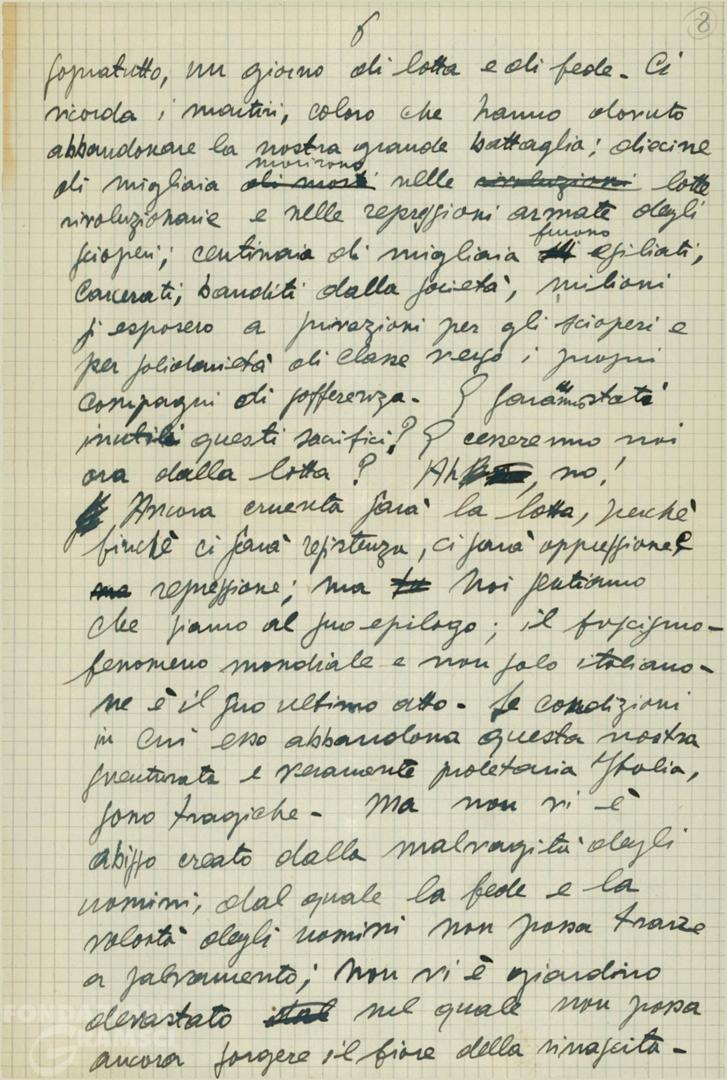 6
8
sopratutto, un giorno di lotta e di fede - Ci
ricorda i martiri, coloro che hanno dovuto
abbandonare la nostra grande battaglia; diecine
morirono
di migliaia di morti nelle rivoluzioni lotte
rivoluzionarie e nelle repressioni armate degli
furono
scioperi; centinaia di migliaia esiliati,
carcerati, banditi dalla società, milioni
si esposero a privazioni per gli scioperi e
per solidarietà di classe verso i propri
compagni di sofferenza - E saranno stati
inutili questi sacrifici? E cesseremo noi
ora dalla lotta? Ah, no!
Ancora cruenta sarà la lotta, perché
finché ci sarà resistenza, ci sarà oppressione e
ma repressione; ma noi sentiamo
che siamo al suo epilogo; il fascismo -
fenomeno mondiale e non solo italiano -
ne è il suo ultimo atto - Le condizioni
in cui esso abbandona questa nostra
sventurata e veramente proletaria Italia,
sono tragiche - Ma non vi è
abisso creato dalla malvagità degli
uomini, dal quale la fede e la
volontà degli uomini non possa trarre
a salvamento; non vi è giardino
devastato nel quale non possa
ancora sorgere il fiore della rinascita -
FONDAZIONE
GRAMSCI